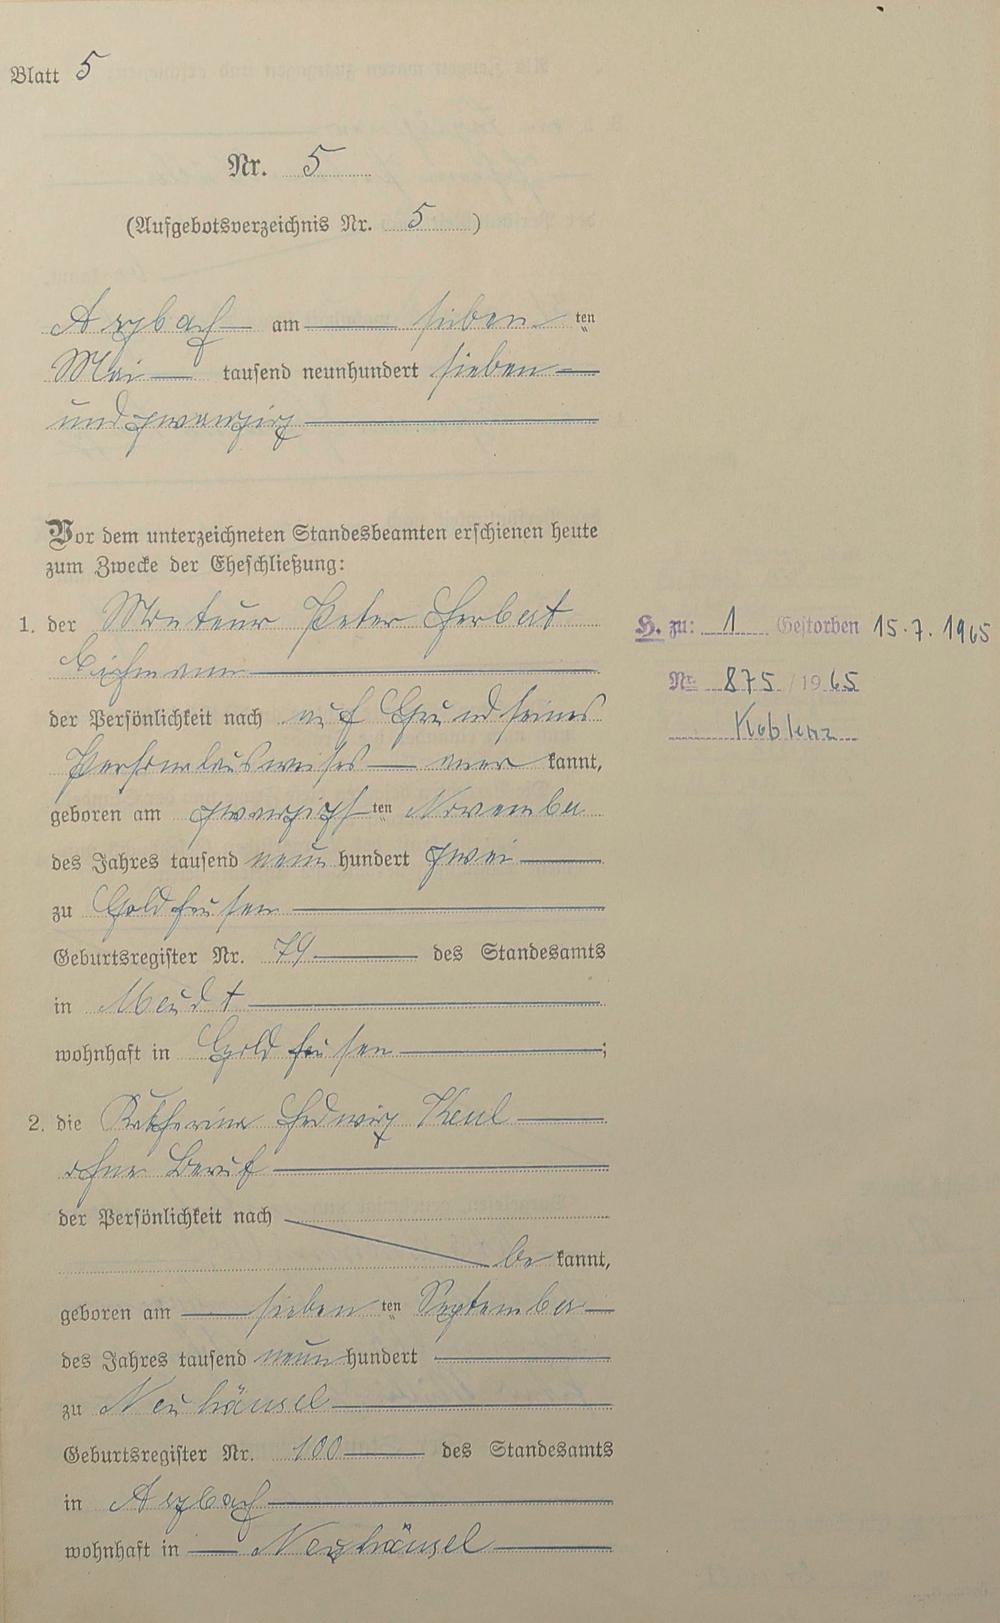 Blatt 5
Nr. 5
(Aufgebotsverzeichnis Nr. 5 )
Arzbach am sieben ten
Mai tausend neunhundert sieben
und zwanzig
Vor dem unterzeichneten Standesbeamten erschienen heute
zum Zwecke der Eheschließung:
1. der Monteur Peter Herbert
H. zu: 1 Gestorben 15.7.1965
Nr. 875 / 1965
Koblenz
der Persönlichkeit nach auf Grund seines
Personalausweises aner kannt,
geboren am zwanzigsten November
des Jahres tausend neun hundert zwei
zu Goldhausen
Geburtsregister Nr. 79 des Standesamts
in Meudt
wohnhaft in Goldhausen ;
2. die Katharina Hedwig Keul
ohne Beruf
der Persönlichkeit nach
be kannt,
geboren am sieben ten September
des Jahres tausend neun hundert
zu Neuhäusel
Geburtsregister Nr. 100 des Standesamts
in Arzbach
wohnhaft in Neuhäusel